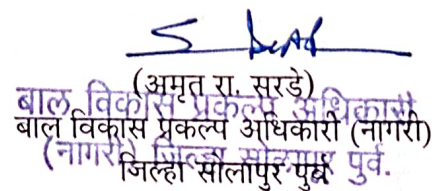 (अमृत रा. सरडे)
बाल विकास प्रकल्प अधिकारी
बाल विकास प्रकल्प अधिकारी (नागरी)
(नागरी) जिल्हा सोलापुर पुर्व.
जिल्हा सोलापुर पुर्व